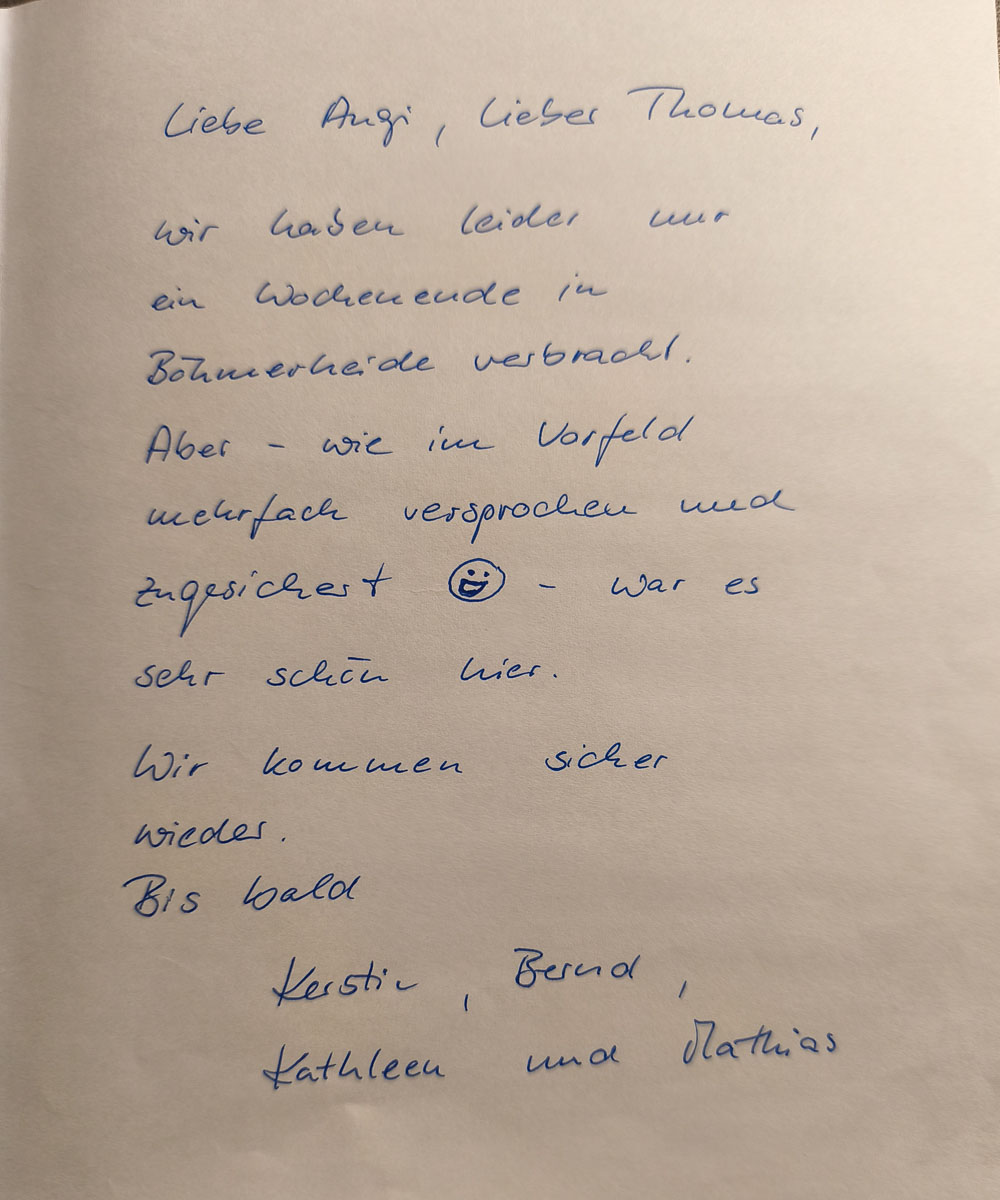 Liebe Angi, Lieber Thomas,
wir haben leider nur
ein Wochenende in
Böhmerheide verbracht.
Aber - wie im Vorfeld
mehrfach versprochen und
zugesichert 😃 - war es
sehr schön hier.
Wir kommen sicher
wieder.
Bis bald
Kerstin, Bernd,
Kathleen und Mathias